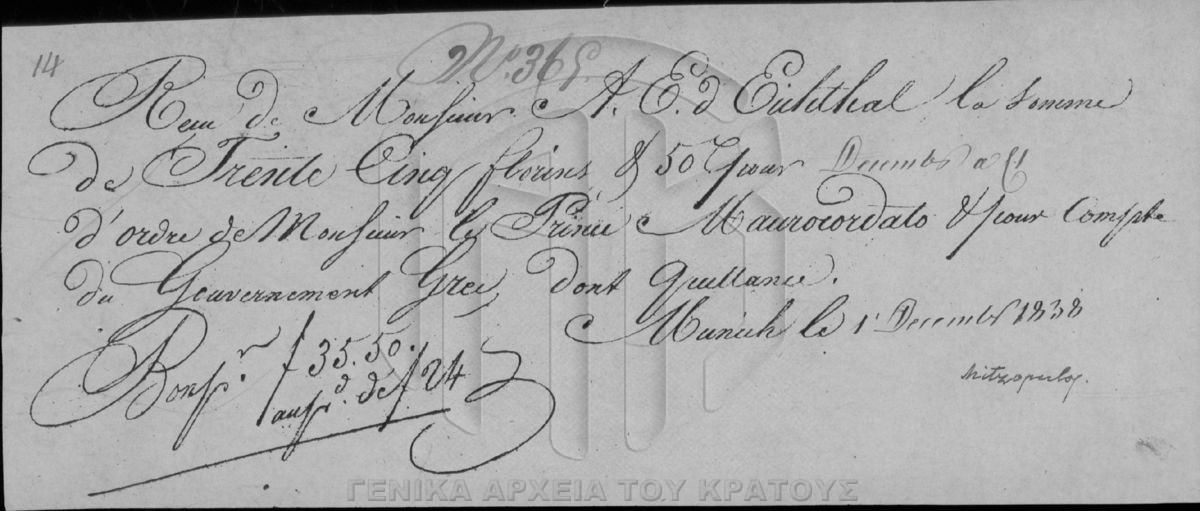 14
No. 365.
Recu de Monsieur A. E. d'Eichthal la somme
de Trente Cinq florins & 50 pour Decembr a
d'ordre de Monsieur le Prince Maurocordato & pour Compte
du Gouvernement Grec, dont quittance.
Munich le 1 Decembr 1838
Bon pr. f 35.50.
au pd. de f 24
Mitzopulos.
ΓΕΝΙΚΑ ΑΡΧΕΙΑ ΤΟΥ ΚΡΑΤΟΥΣ